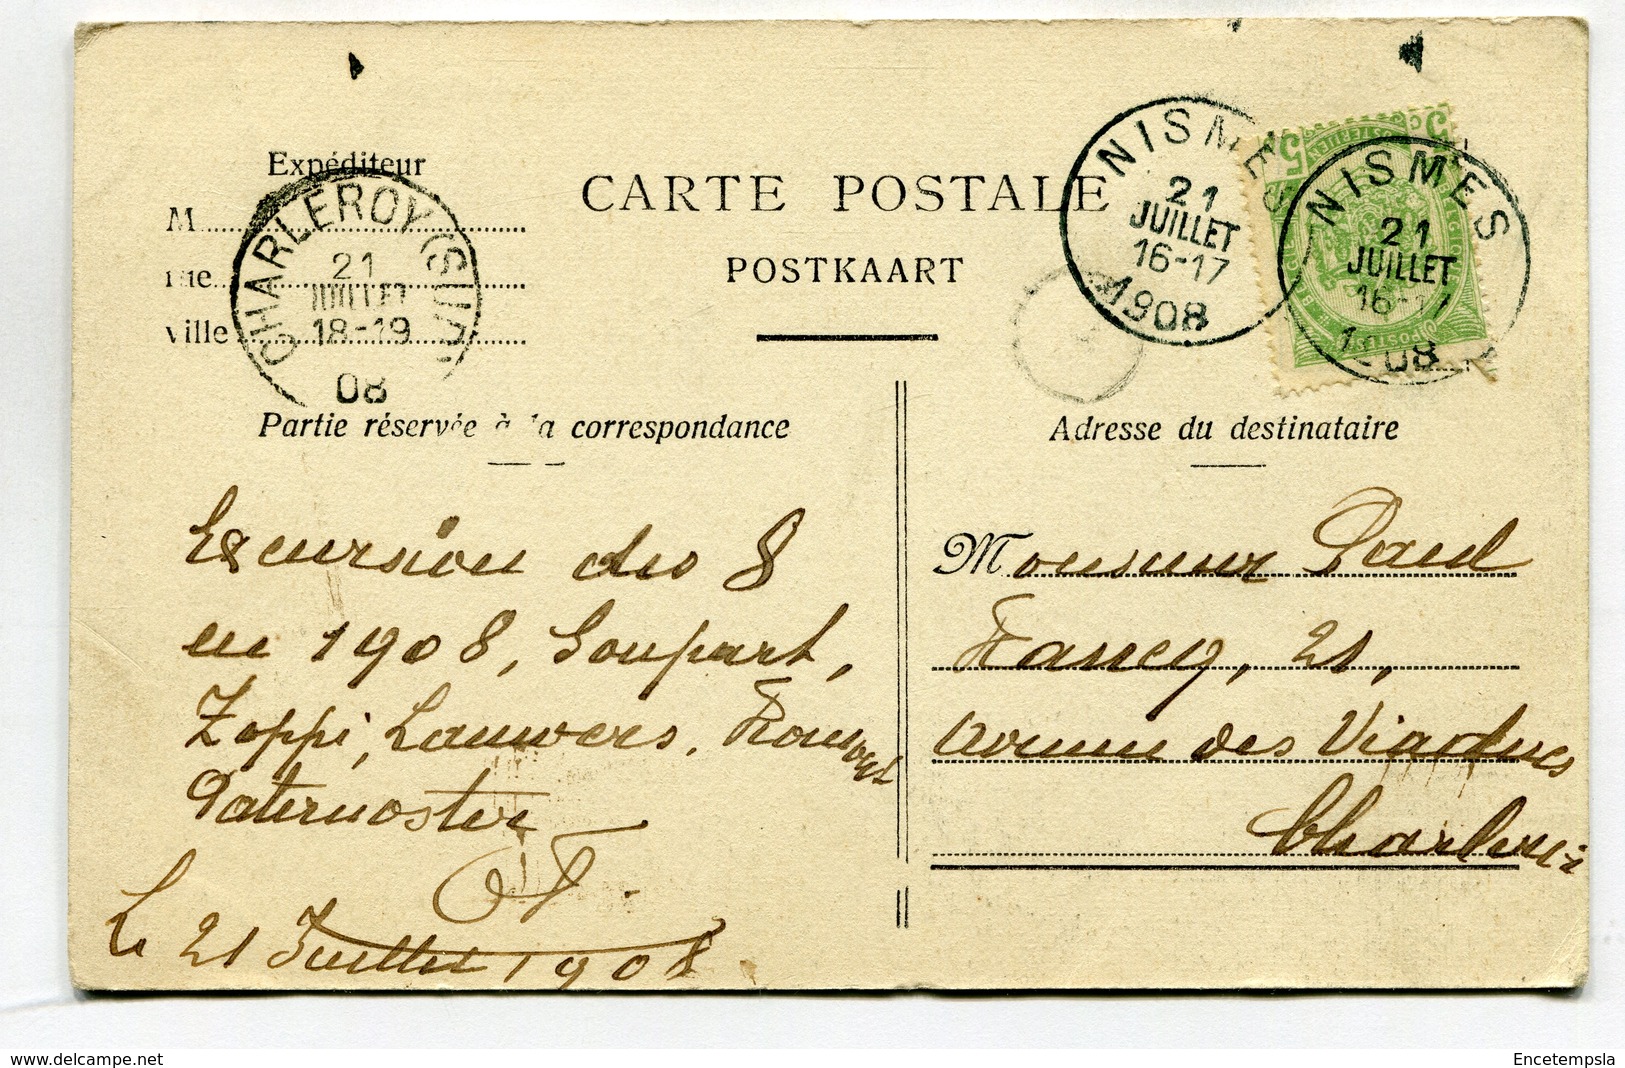 Expéditeur
M
rue
ville
CHARLEROY (SUD)
21
JUILLET
18-19
08
CARTE POSTALE
POSTKAART
NISMES
21
JUILLET
16-17
1908
NISMES
21
JUILLET
16-17
1908
Partie réservée à la correspondance
Adresse du destinataire
Excursion des 8
en 1908, Goupart,
Zoppi, Lauwers,
Paternoster
Le 21 Juillet 1908
Monsieur Paul
Fancy, 21,
Avenue des Viaducs
Charleroi
Encetempsla
delcampe.net